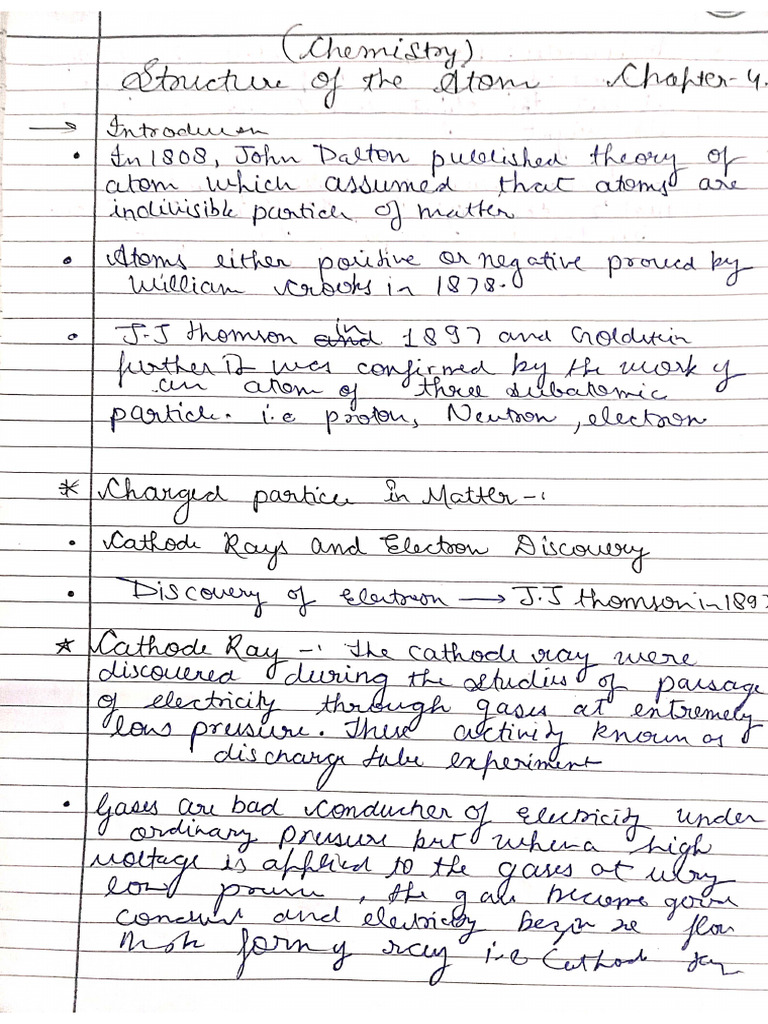 (Chemistry)
Structure of the Atom Chapter-4.
→ Introducion
• In 1808, John Dalton published theory of
atom which assumed that atoms are
indivisible particle of matter
• Atoms either positive or negative proved by
William Crooks in 1878.
• J.J thomson in 1897 and Goldstein
further it was confirmed by the work of
an atom of three subatomic
particle. i.e proton, Neutron, electron
* Charged particle in Matter -:
• Cathode Rays and Electron Discovery
• Discovery of Electron → J.J thomson in 1897
* Cathode Ray -: the cathode ray were
discovered during the studies of passage
of electricity through gases at extremely
low pressure. These activity known as
discharge tube experiment
• Gases are bad conducher of Electricity under
ordinary pressure but when a high
voltage is applied to the gases at very
low , the gas become good
and electricity begin to flow
form of ray i.e Cathod ray